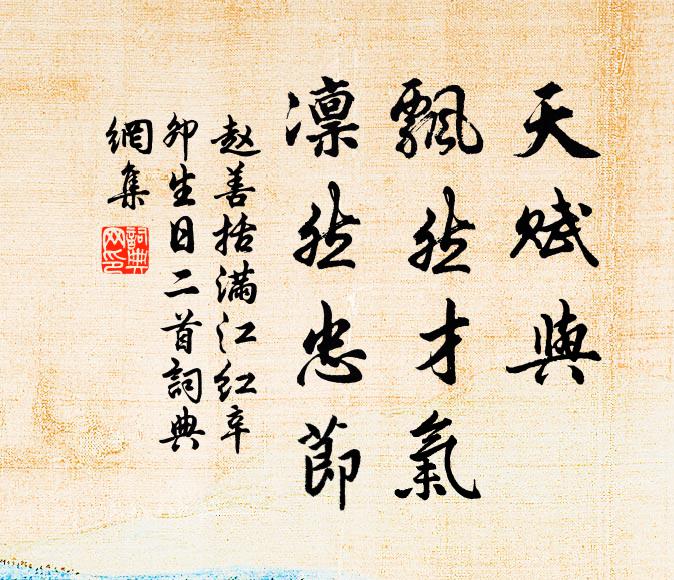 天賦與
飄然才氣
凛然忠節
赵善括满江红辛
卯生日二首詞典
網集
詞典
网印